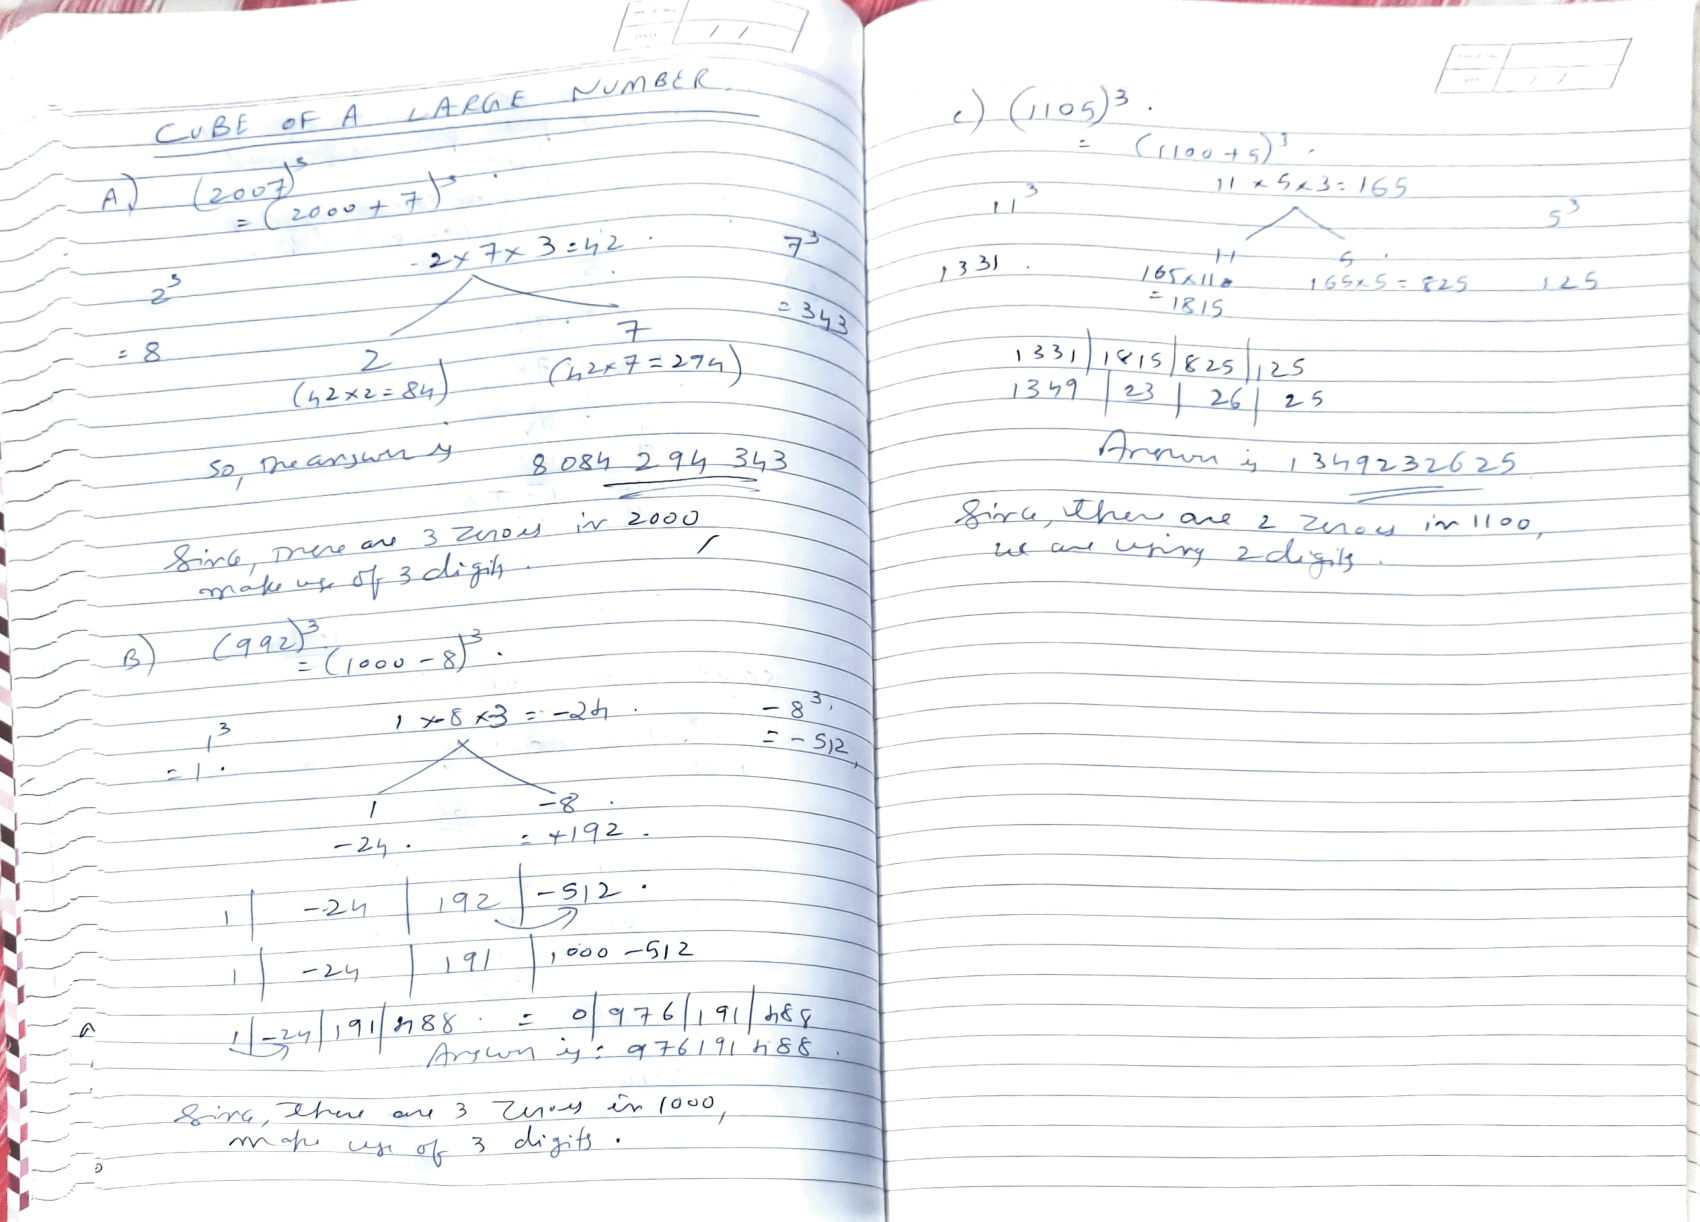 CUBE OF A LARGE NUMBER.
A) (2007)³
= (2000 + 7)³.
2³ 2 x 7 x 3 = 42. 7³
= 8 2 7 = 343
(42x2=84) (42x7=294)
So, the answer is 8 084 294 343
Since, there are 3 zeroes in 2000
make use of 3 digits.
B) (992)³
= (1000 - 8)³.
1³ 1 x -8 x 3 = -24. -8³.
= 1. = -512
1 -8.
-24. = +192.
1 | -24 | 192 | -512.
1 | -24 | 191 | 1000 - 512
1 | -24 | 191 | 488. = 0 | 976 | 191 | 488
Answer is: 976191488.
Since, there are 3 zeroes in 1000,
make use of 3 digits.
c) (1105)³.
= (1100 + 5)³.
11 x 5 x 3 = 165
11³ 5³
11 5.
1331. 165x11 165x5 = 825 125
= 1815
1331 | 1815 | 825 | 125
1349 | 23 | 26 | 25
Answer is 1349232625
Since, there are 2 zeroes in 1100,
we are using 2 digits.